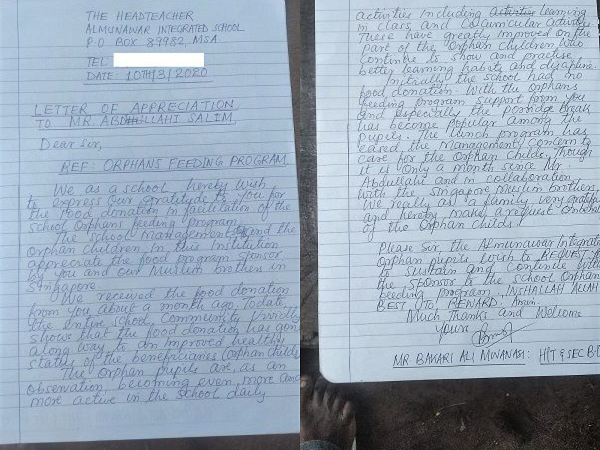 THE HEADTEACHER
ALMUNAWAR INTEGRATED SCHOOL
P.O BOX 89982 MSA
TEL:
DATE: 10TH/3/2020
LETTER OF APPRECIATION
TO MR. ABDULLAHI SALIM
Dear Sir,
REF: ORPHANS FEEDING PROGRAM
We as a school hereby wish
to express our gratitude to you for
the food donation in facilitation of the
school Orphans feeding program.
The school management and the
Orphan children in this institution
appreciate the food program sponsor
by you and our Muslim brothers in
Singapore.
We received the food donation
from you about a month ago. Todate,
the entire school community
shows that the food donation has gon
along way to an improved healthy
status of the beneficiaries (orphan childs
The Orphan pupils are, as an
Observation, becoming even more and
more active in the school daily
activities including activities learning
in class and Cocurricular Activities
These have greatly improved on the
part of the Orphan children who
continue to show and practise
better learning habits and discipline.
Initially the school had no
food donation. With the orphans
feeding program support from you
and especially the porridge Break
has become popular among the
pupils. The lunch program has
eased the Management concern to
care for the Orphan childs, though
it is only a month since Mr.
Abdullahi and in collaboration
with the Singapore Muslim brothers.
We really as a family, very gratiful
and hereby make a request on behalf
of the Orphan childs.
Please Sir, the Almunawar Integrate
Orphan pupils wish to REQUEST
to sustain and Continue with
the sponsor to the school Orphan
feeding program, INSHALLAH ALLAH
BEST TO REWARD. Amin.
Much Thanks and Welcome
Yours
MR BAKARI ALI MWANASI: H/T & SEC B.O